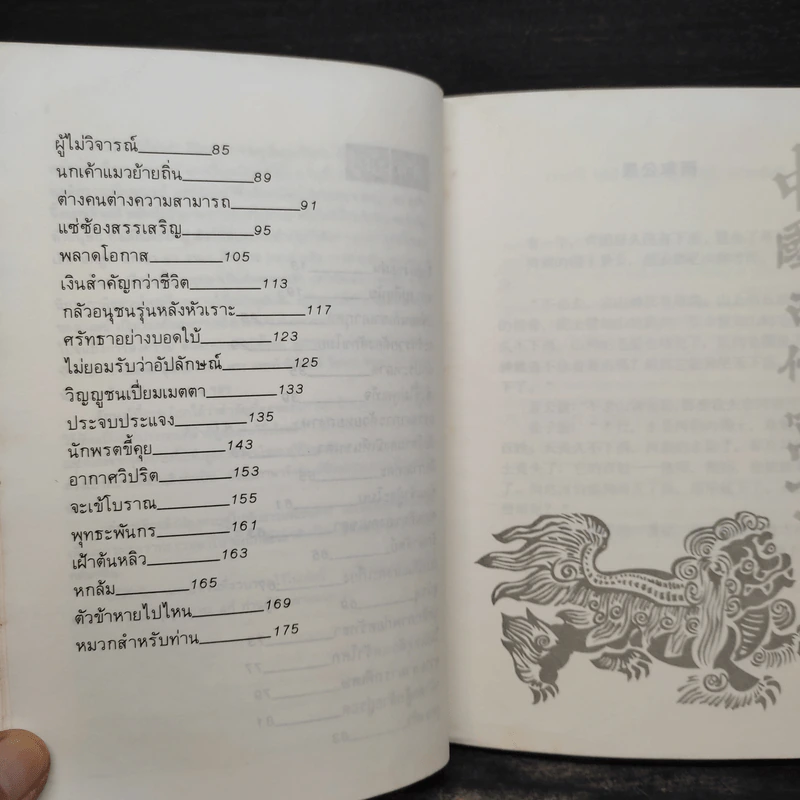 ผู้ไม่วิจารณ์ 85
นกเค้าแมวย้ายถิ่น 89
ต่างคนต่างความสามารถ 91
แซ่ซ้องสรรเสริญ 95
พลาดโอกาส 105
เงินสำคัญกว่าชีวิต 113
กลัวอนุชนรุ่นหลังหัวเราะ 117
ศรัทธาอย่างบอดใบ้ 123
ไม่ยอมรับว่าอัปลักษณ์ 125
วิญญูชนเปี่ยมเมตตา 133
ประจบประแจง 135
นักพรตขี้คุย 143
อากาศวิปริต 153
จะเข้โบราณ 155
พุทธะพันกร 161
เฝ้าต้นหลิว 163
หกล้ม 165
ตัวข้าหายไปไหน 169
หมวกสำหรับท่าน 175
中國古代